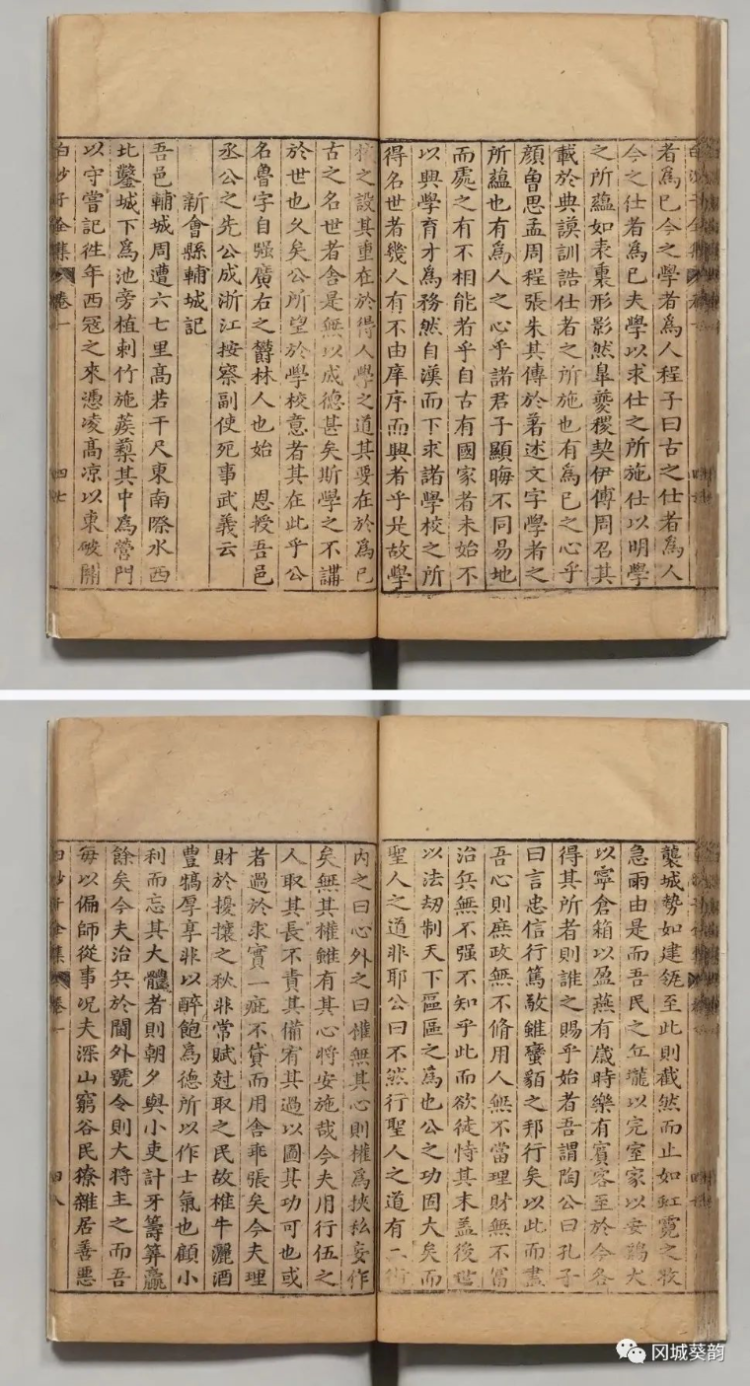 者為已今之學者為人程子曰古之仕者為人
今之仕者為已夫學以求仕之所施仕以明學
之所蘊如表裏形影然臯夔稷契伊傅周召其
載於典謨訓誥仕者之所施也有為已之心乎
顏曾思孟周程張朱其傳於著述文字學者之
所蘊也有為人之心乎諸君子顯晦不同易地
而處之有不相能者乎自古有國家者未始不
以興學育才為務然自漢而下求諸學校之所
得名世者幾人有不由庠序而興者乎是故學
校之設其重在於得人學之道其要在於為已
古之名世者舍是無以成德甚矣斯學之不講
於世也久矣公所望於學校意者其在此乎公
名魯字自强廣右之欝林人也始 恩授吾邑
丞公之先公成浙江按察副使死事武義云
新會縣輔城記
吾邑輔城周遭六七里高若干尺東南際水西
北鑿城下為池旁植刺竹施蒺藜其中為營門
以守嘗記徃年西寇之來憑凌高凉以東破關
白沙子全集 卷一 四七
襲城勢如建瓴至此則截然而止如虹霓之收
急雨由是而吾民之丘壠以完室家以安鷄犬
以寧倉箱以盈燕有歳時樂有賓客至於今各
得其所者則誰之賜乎始者吾謂陶公曰孔子
曰言忠信行篤敬雖蠻貊之邦行矣以此而盡
吾心則庶政無不脩用人無不當理財無不富
治兵無不强不知乎此而欲徒恃其末葢後世
以法刼制天下區區之為也公之功固大矣而
聖人之道非耶公曰不然行聖人之道有二術
内之曰心外之曰權無其心則權為挾㳒妄作
矣無其權雖有其心將安施哉今夫用行伍之
人取其長不責其備宥其過以圖其功可也或
者過於求實一疵不貸而用舍乖張矣今夫理
財於擾攘之秋非常賦尅取之民故椎牛灑酒
豊犒厚享非以醉飽為德所以作士氣也顧小
利而忘其大體者則朝夕與小吏計牙籌筭贏
餘矣今夫治兵於閫外號令則大将主之而吾
每以偏師從事况夫深山窮谷民獠雜居善惡
白沙子全集 卷一 四八
冈城葵韵